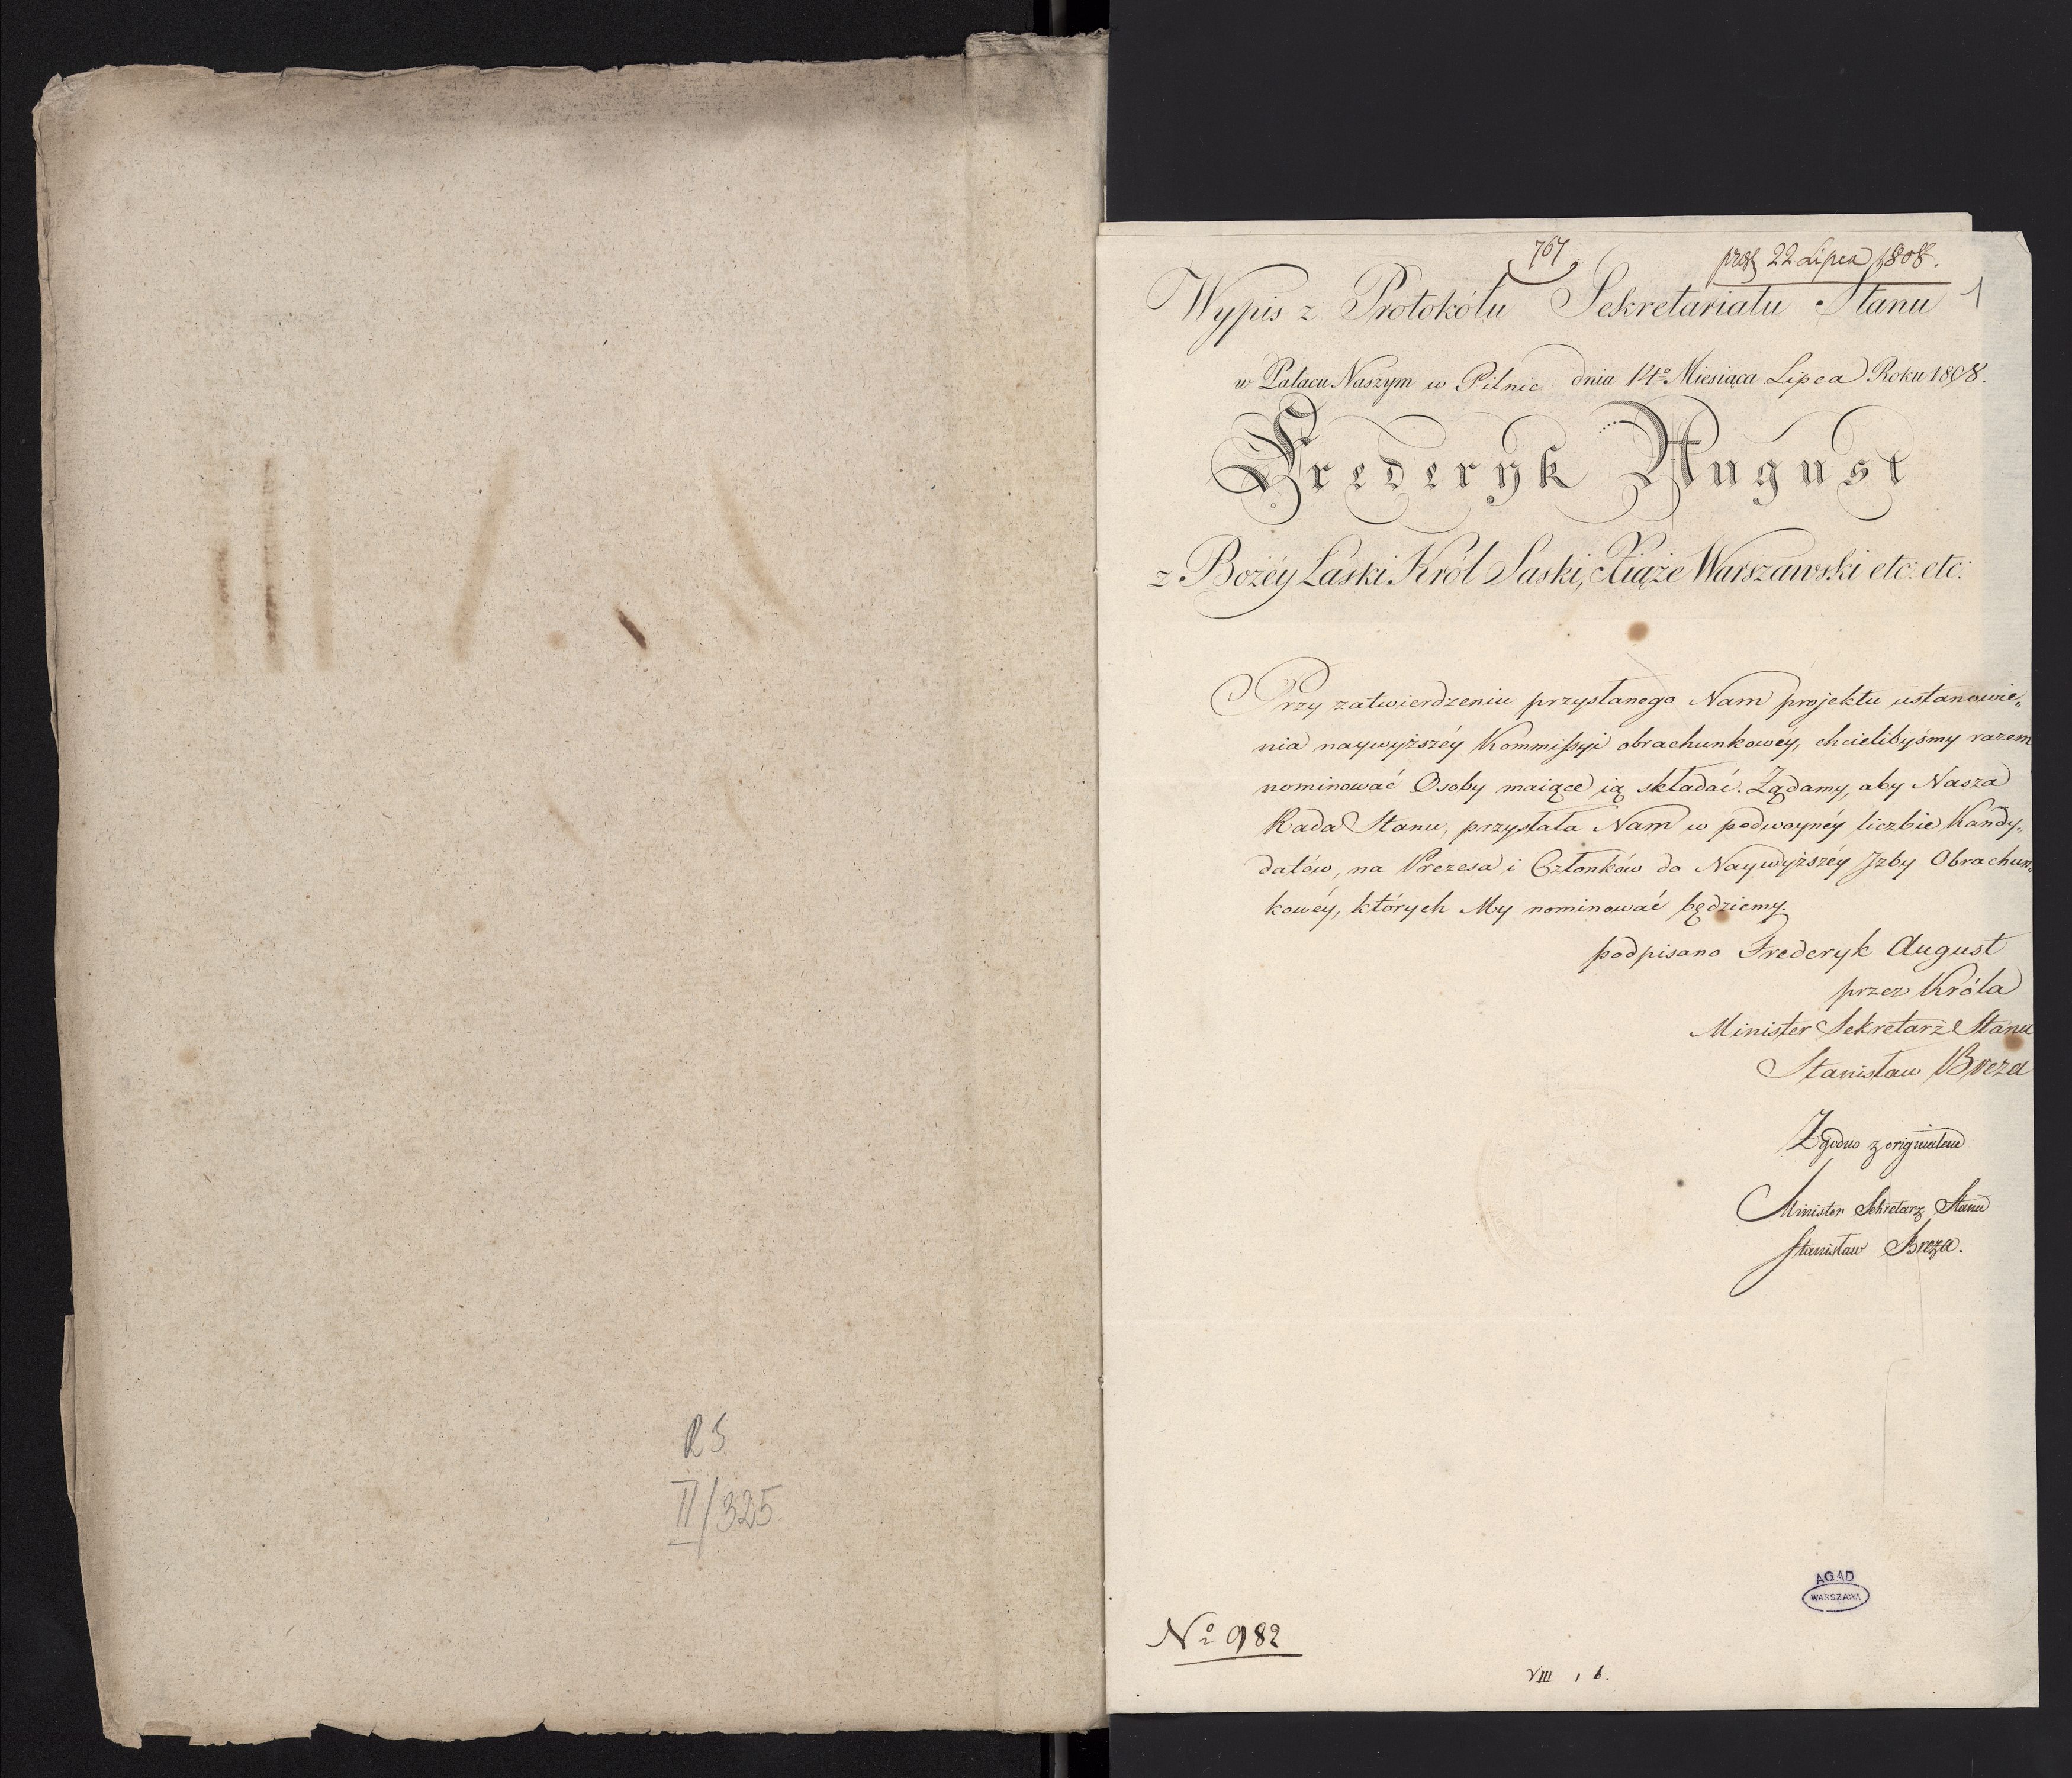 R S
II/325
767
prez 22 Lipca 1808.
1
Wypis z Protokółu Sekretariatu Stanu
w Pałacu Naszym w Pilnic dnia 14º Miesiąca Lipca Roku 1808.
Frederyk August
z Bożéy Łaski Król Saski, Xiąże Warszawski etc: etc:
Przy zatwierdzeniu przysłanego Nam projektu ustanowie„
nia naywyższéy Kommissyi obrachunkowéy, chcielibyśmy razem
nominować Osoby maiące ią składać. Żądamy, aby Nasza
Rada Stanu, przysłała Nam w podwoynéy liczbie Kandy„
datów, na Prezesa i Członków do Naywyższéy Jzby Obrachun„
kowéy, których My nominować będziemy.
podpisano Frederyk August
przez Króla
Minister Sekretarz Stanu
Stanisław Breza
Zgodno z originałem
Minister Sekretarz Stanu
Stanisław Breza.
AGAD
WARSZAWA
Nº 982
VIII , b.